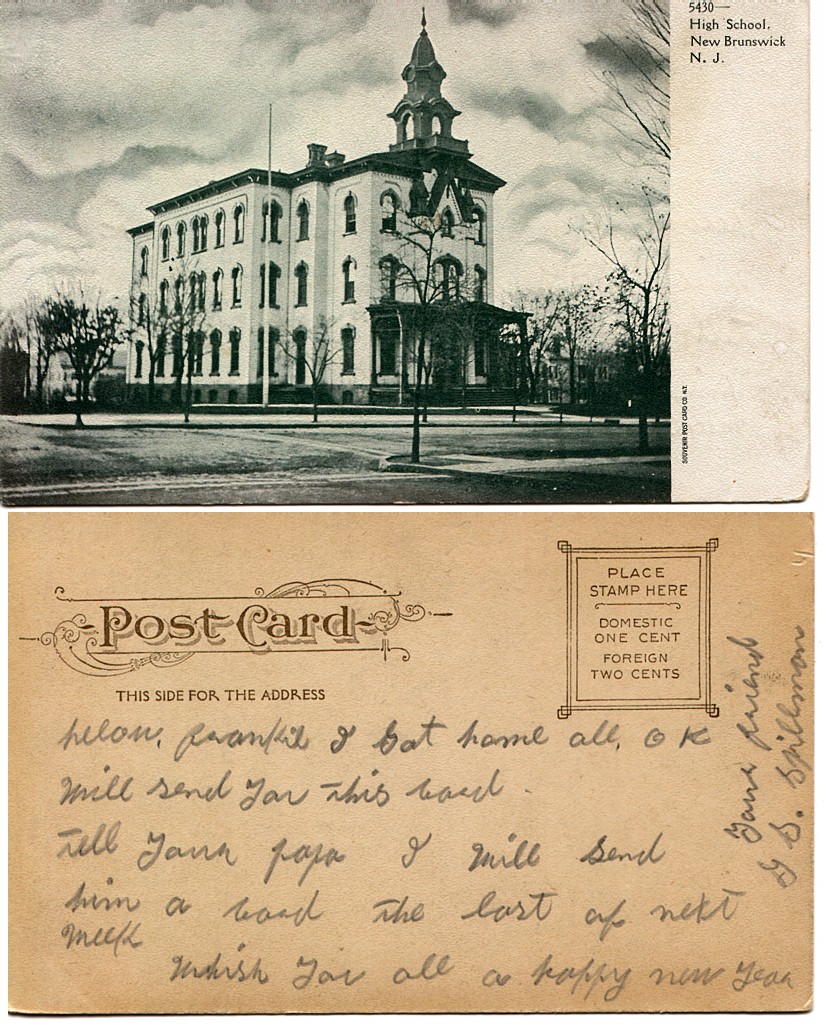 5430—
High School.
New Brunswick
N. J.
SOUVENIR POST CARD CO. N.Y.
Post Card
THIS SIDE FOR THE ADDRESS
PLACE
STAMP HERE
DOMESTIC
ONE CENT
FOREIGN
TWO CENTS
helow, frankie I Got home all, OK
Will send You this card.
tell Your papa I Will send
him a card the last of next
Week
Whish You all a happy new Year
Your friend
S. Spillman